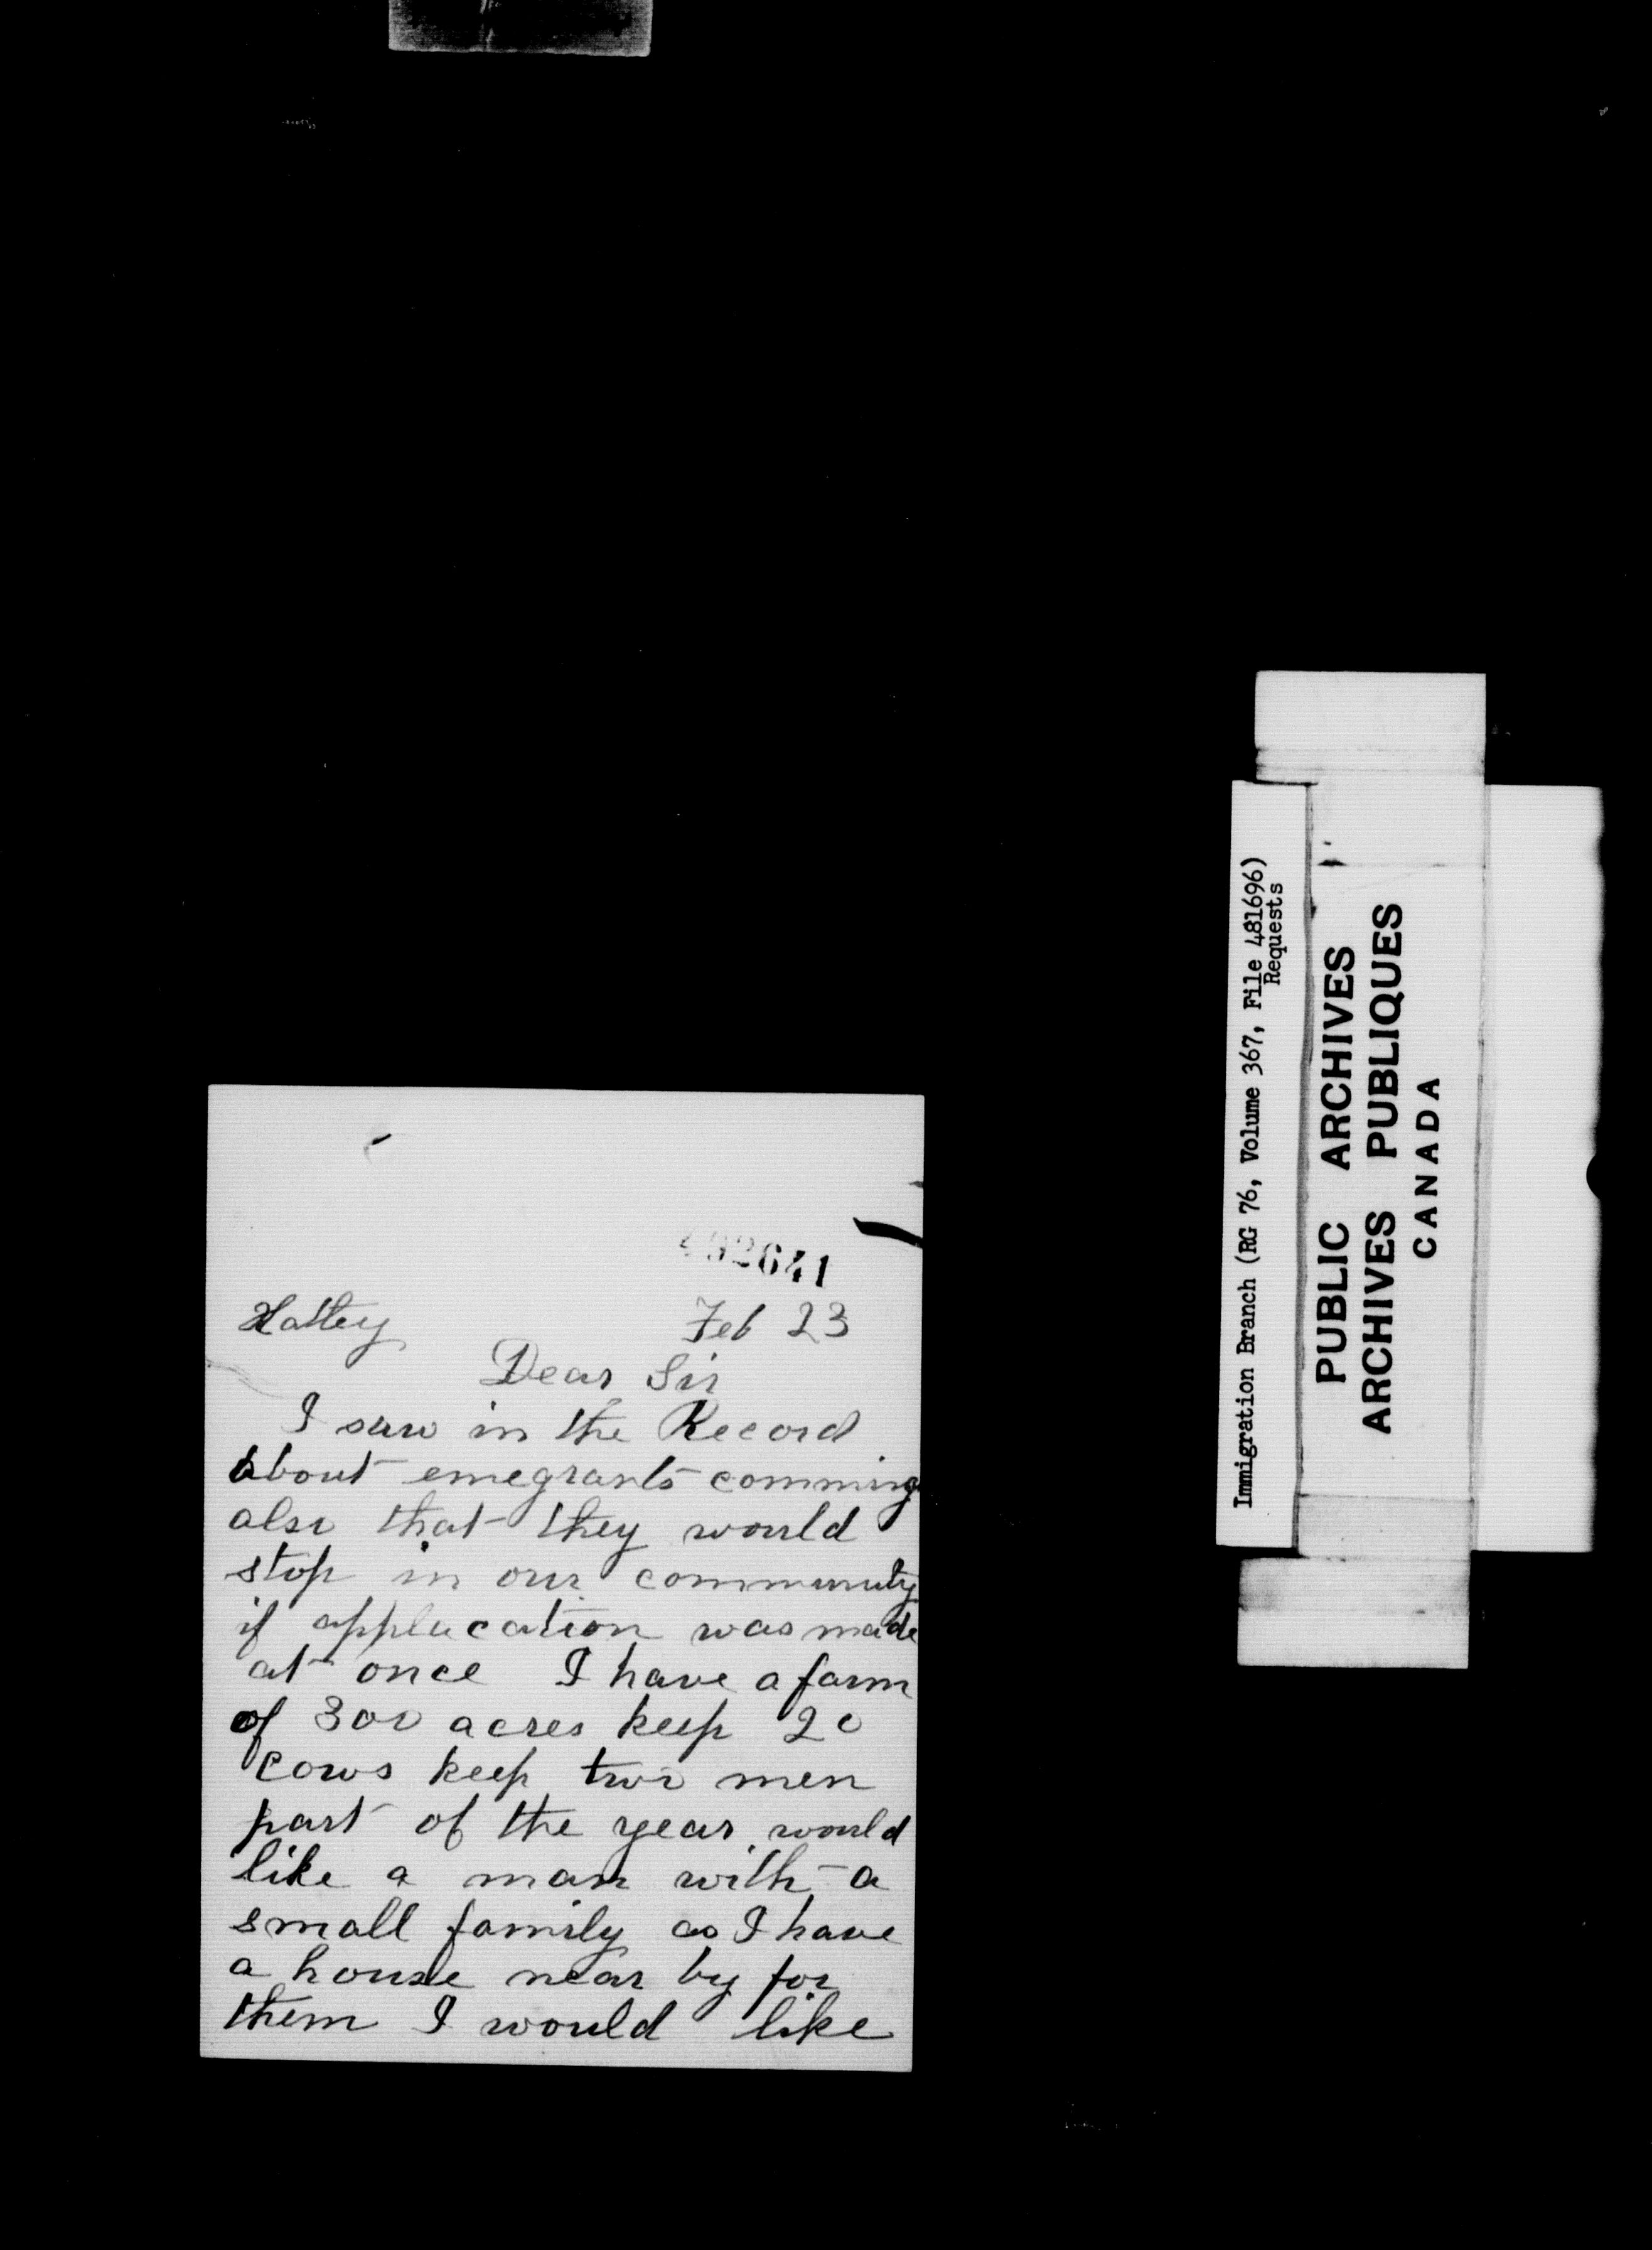 492641
Hatley Feb 23
Dear Sir
I saw in the Record
about emegrants comming
also that they would
stop in our community
if applucation was made
at once I have a farm
of 300 acres keep 20
cows keep two men
part of the year would
like a man with a
small family as I have
a house near by for
them I would like
Immigration Branch (RG 76, Volume 367, File 481696)
Requests
PUBLIC ARCHIVES
ARCHIVES PUBLIQUES
CANADA